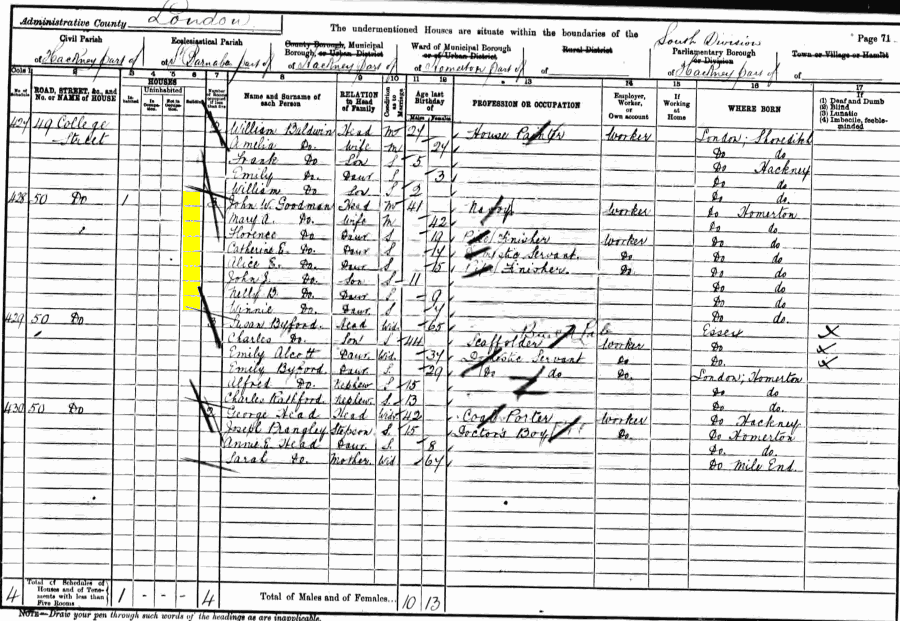 Administrative County London
The undermentioned Houses are situate within the boundaries of the
Page 71
Civil Parish
of Hackney part of
Ecclesiastical Parish
of St Barnabas part of
County Borough, Municipal Borough, or Urban District
of Hackney part of
Ward of Municipal Borough or of Urban District
of Homerton part of
Rural District
of
South Division
Parliamentary Borough or Division
of Hackney part of
Town or Village or Hamlet
of
Cols 1 2 3 4 5 6 7 8 9 10 11 12 13 14 15 16 17
No. of Schedule
ROAD, STREET, &c., and No. or NAME of HOUSE
HOUSES
Inhabited
Uninhabited
In Occupation
Not in Occupation
Building
Name and Surname of each Person
RELATION to Head of Family
Condition as to Marriage
Age last Birthday of
Males Females
PROFESSION OR OCCUPATION
Employer, Worker, or Own account
If Working at Home
WHERE BORN
(1) Deaf and Dumb
(2) Blind
(3) Lunatic
(4) Imbecile, feeble-minded
427 49 College Street William Baldwin Head M 27 House Painter Worker London; Shoreditch
Amelia Do. Wife M 24 Do do.
Frank Do Son S 5 Do Hackney
Emily Do. Daur S 3 Do do.
William Do Son S 2 Do do.
428 50 Do 1 John W. Goodman Head M 41 Navvy Worker Do Homerton
Mary A. Do. Wife M 42 Do do.
Florence Do Daur S 19 Finisher Worker Do do
Catherine E. Do Daur S 17 Domestic Servant. Do Do do
Alice E. Do. Daur S 15 Finisher Do. Do do
John J. Do Son S 11 Do do
Nelly B. Do. Daur S 9 Do do
Winnie Do. Daur S 7 Do do.
429 50 Do Susan Byford. Head Wid. 65 Essex
Charles Do. Son S 44 Scaffolder Worker Do
Emily Alcott Daur Wid. 34 Domestic Servant Do Do
Emily Byford. Daur S 29 Do do Do. London; Homerton
Alfred Do. Nephew S 15 Do do
Charles Rathford. Nephew S 13 Do do.
430 50 Do George Head Head Wid 42 Coal Porter Worker Do Hackney
Joseph Brangley Stepson S. 15 Doctors Boy Do. Do Homerton
Annie E. Head Daur S 8 Do. do.
Sarah Do. Mother. Wid. 67 Do Mile End.
4 Total of Schedules of Houses and of Tenements with less than Five Rooms 1 - - - 4 Total of Males and of Females... 10 13
NOTE—Draw your pen through such words of the headings as are inapplicable.